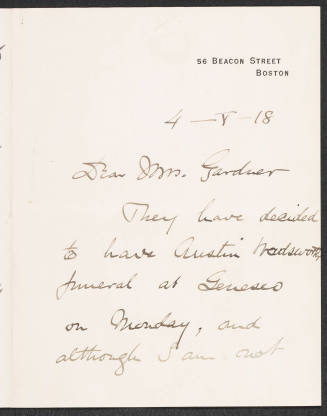 56 BEACON STREET
BOSTON
4 – V – 18
Dear Mrs. Gardner
They have decided
to have Austin Wadsworth
funeral at Geneseo
on Monday, and
although I am not